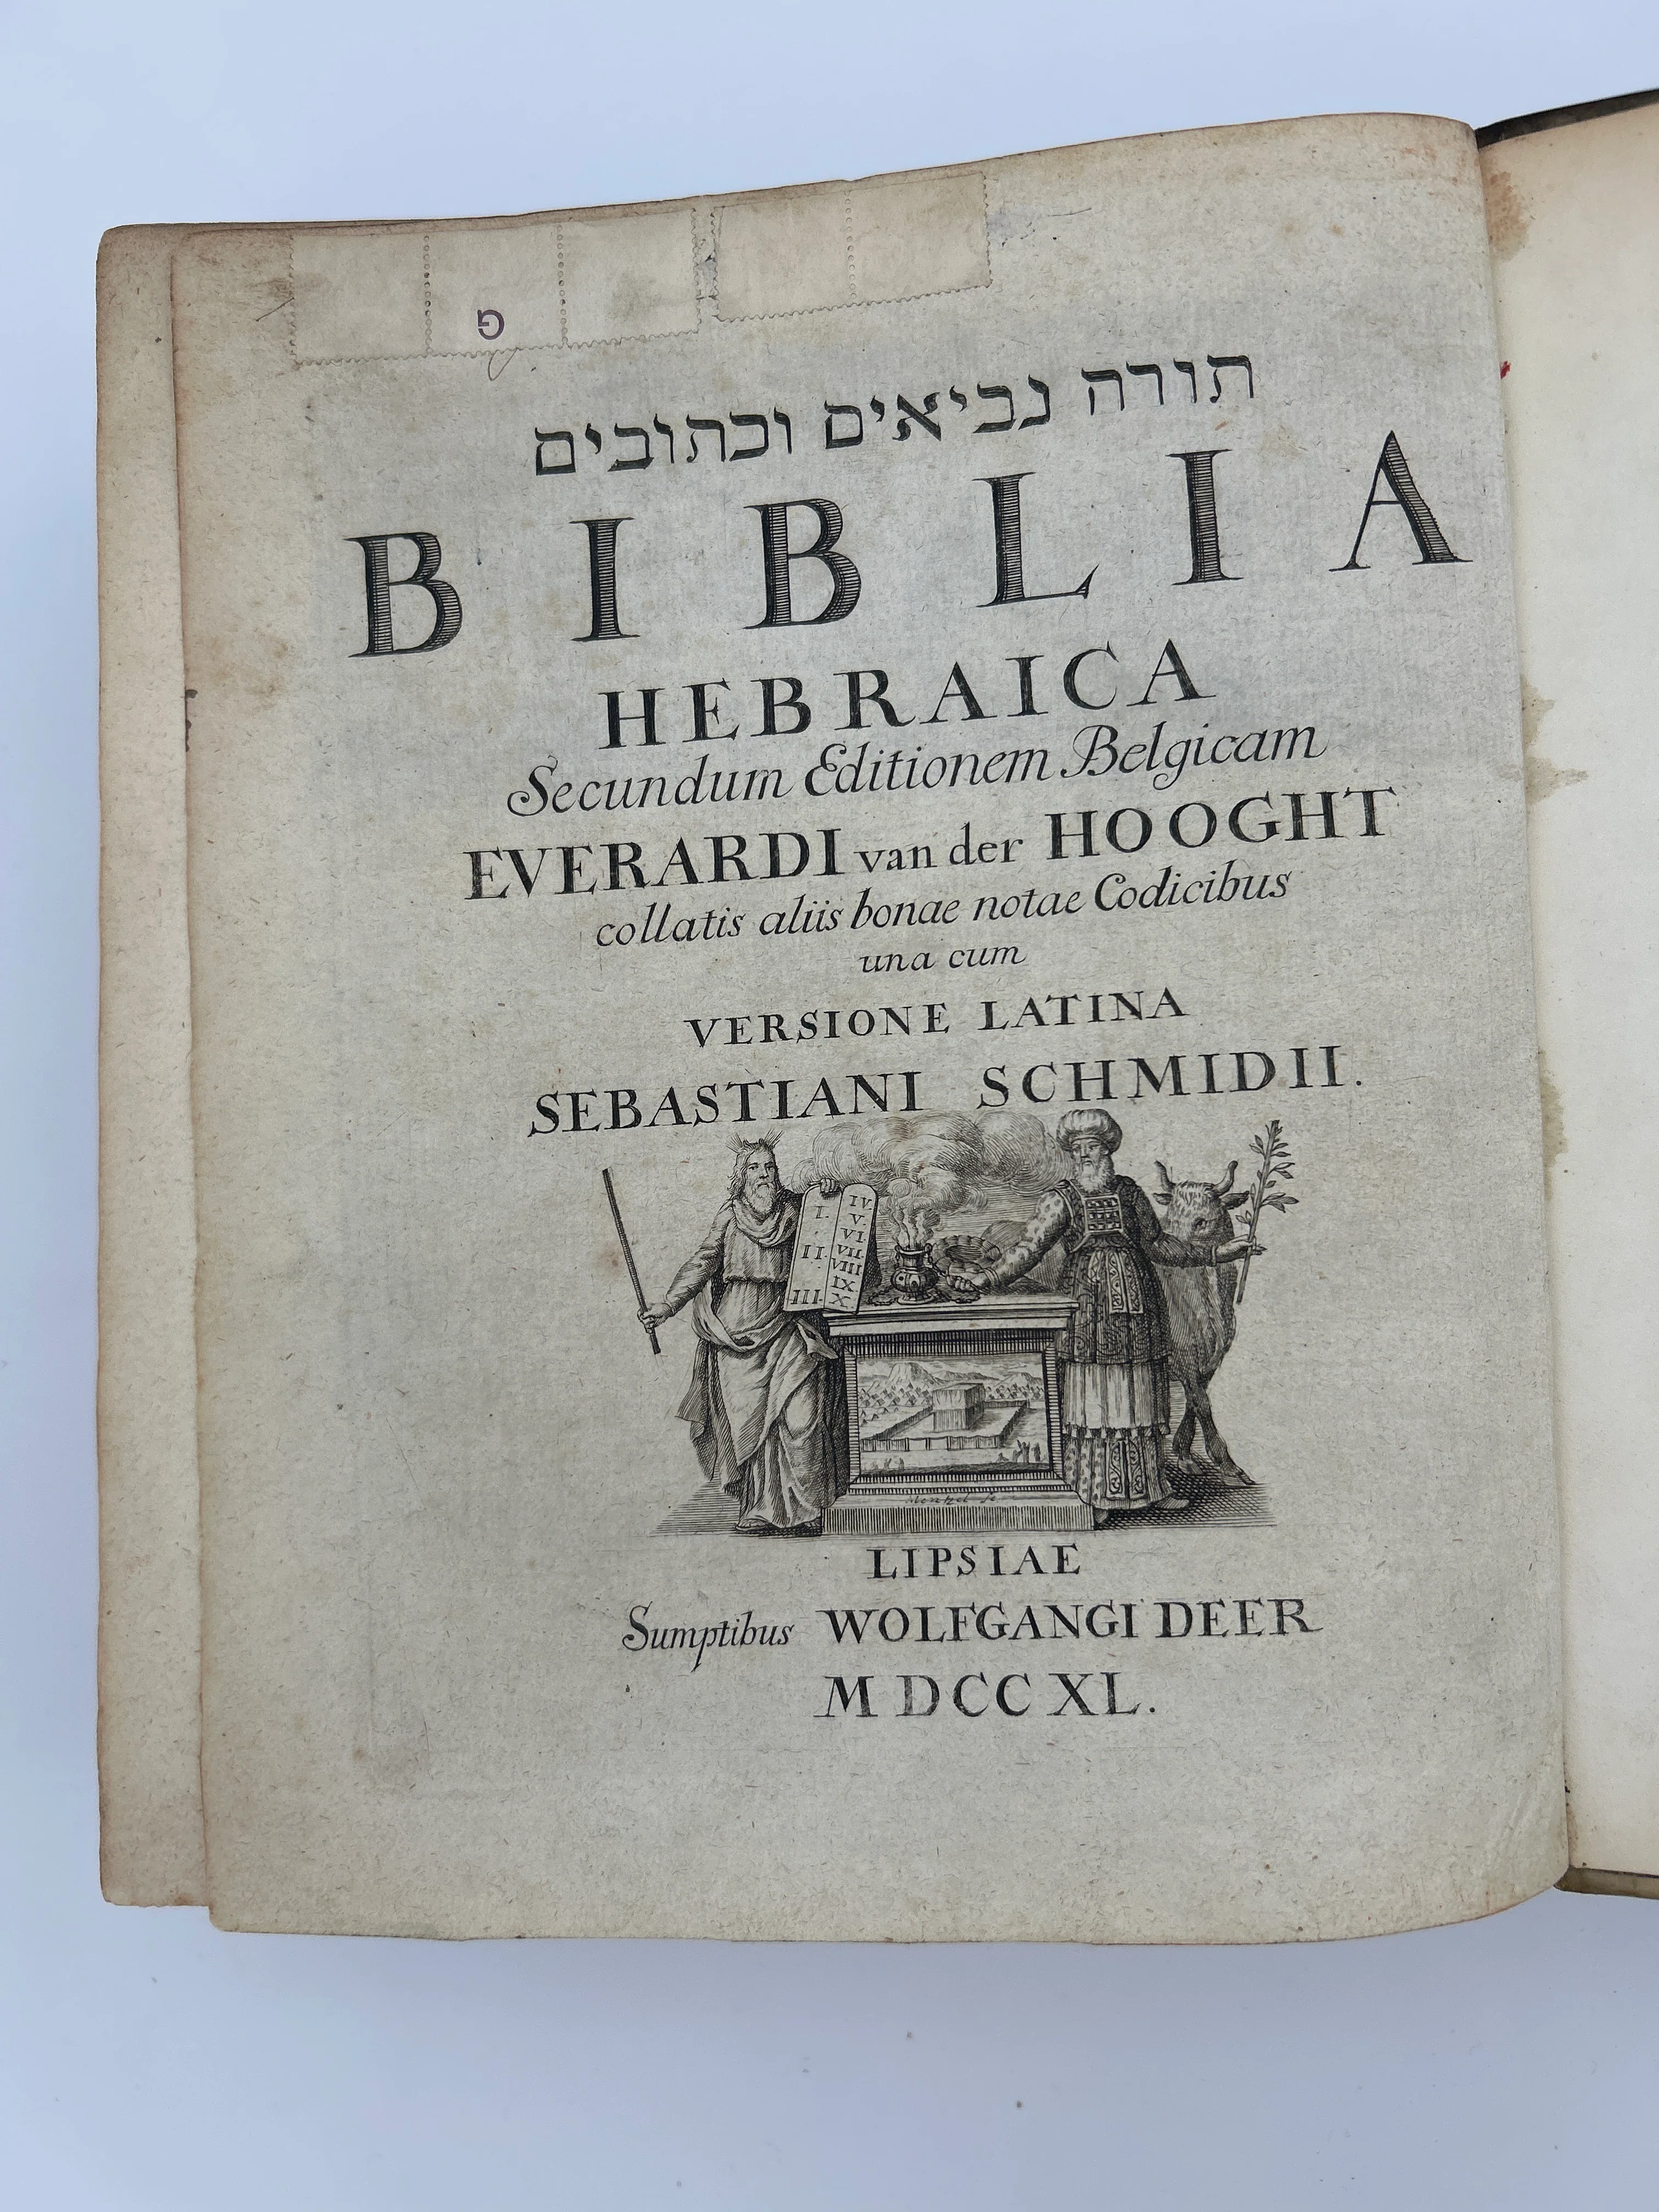 G
תורה נביאים וכתובים
BIBLIA
HEBRAICA
Secundum Editionem Belgicam
EVERARDI van der HOOGHT
collatis aliis bonae notae Codicibus
una cum
VERSIONE LATINA
SEBASTIANI SCHMIDII.
I. IV.
V.
VI.
II. VII.
VIII
IX.
III. X.
Mentzel sc
LIPSIAE
Sumptibus WOLFGANGI DEER
MDCCXL.